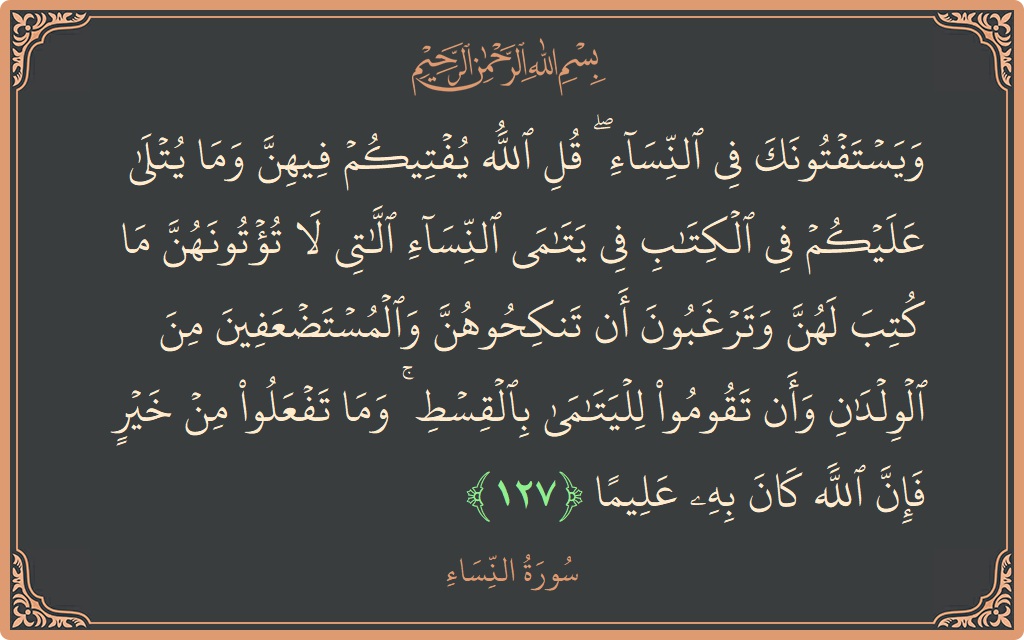 بِسْمِ اللهِ الرَّحْمٰنِ الرَّحِيْمِ
وَيَسۡتَفۡتُونَكَ فِي ٱلنِّسَآءِۖ قُلِ ٱللَّهُ يُفۡتِيكُمۡ فِيهِنَّ وَمَا يُتۡلَىٰ
عَلَيۡكُمۡ فِي ٱلۡكِتَٰبِ فِي يَتَٰمَى ٱلنِّسَآءِ ٱلَّٰتِي لَا تُؤۡتُونَهُنَّ مَا
كُتِبَ لَهُنَّ وَتَرۡغَبُونَ أَن تَنكِحُوهُنَّ وَٱلۡمُسۡتَضۡعَفِينَ مِنَ
ٱلۡوِلۡدَٰنِ وَأَن تَقُومُواْ لِلۡيَتَٰمَىٰ بِٱلۡقِسۡطِۚ وَمَا تَفۡعَلُواْ مِنۡ خَيۡرٖ
فَإِنَّ ٱللَّهَ كَانَ بِهِۦ عَلِيمٗا ﴿١٢٧﴾
سُورَةُ النِّسَاءِ